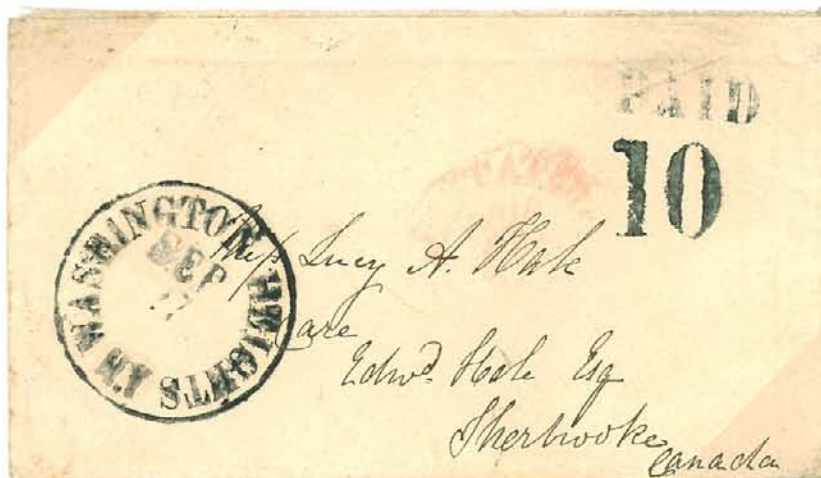 PAID
10
WASHINGTON HEIGHTS N.Y
SEP
Miss Lucy A. Hale
Care
Edwd. Hale Esq
Sherbrooke
Canada